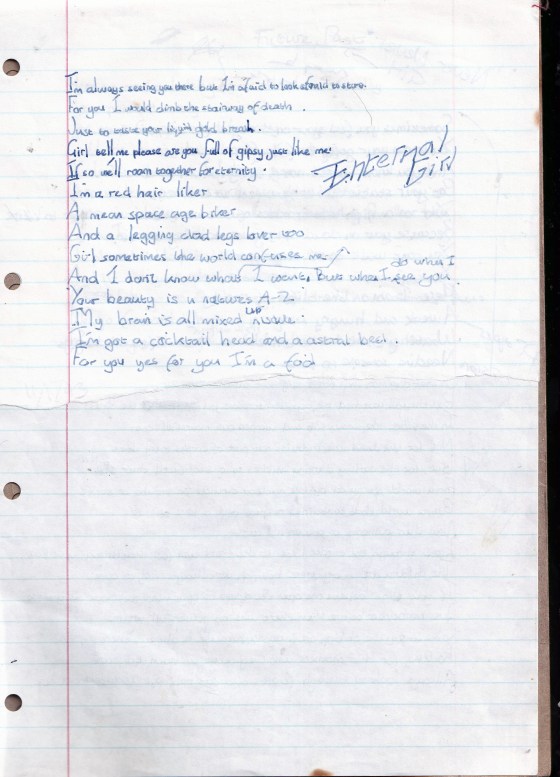 I'm always seeing you there but I'm afraid to look afraid to stare.
For you I would climb the stairway of death.
Just to taste your gold breath.
Girl tell me please are you full of gipsy just like me.
If so we'll roam together for eternity.
Internal Girl
I'm a red hair liker
A mean space age biker
And a legging clad legs lover too
Girl sometimes the world confuses me
And I don't know what I want, But when I see you.
do when I
Your beauty is natures A-Z
My brain is all mixed up
I'm got a cocktail head and a astral bed.
For you yes for you I'm a